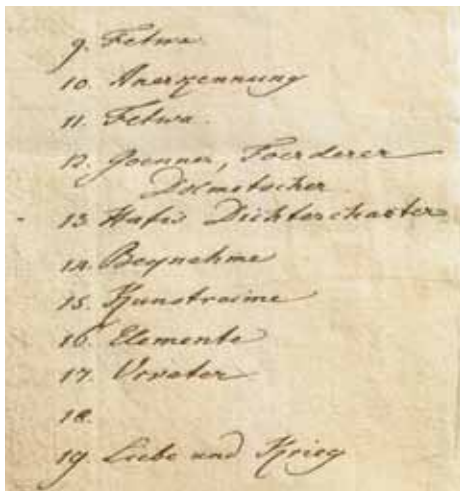 9. Fetwa.
10. Anerkennung
11. Fetwa.
12. Goenner, Foerderer
Dolmetscher
13. Hafis Dichtercharkter
14. Beynahme
15. Kunstreime
16. Elemente
17. Vorvater
18.
19. Liebe und Krieg